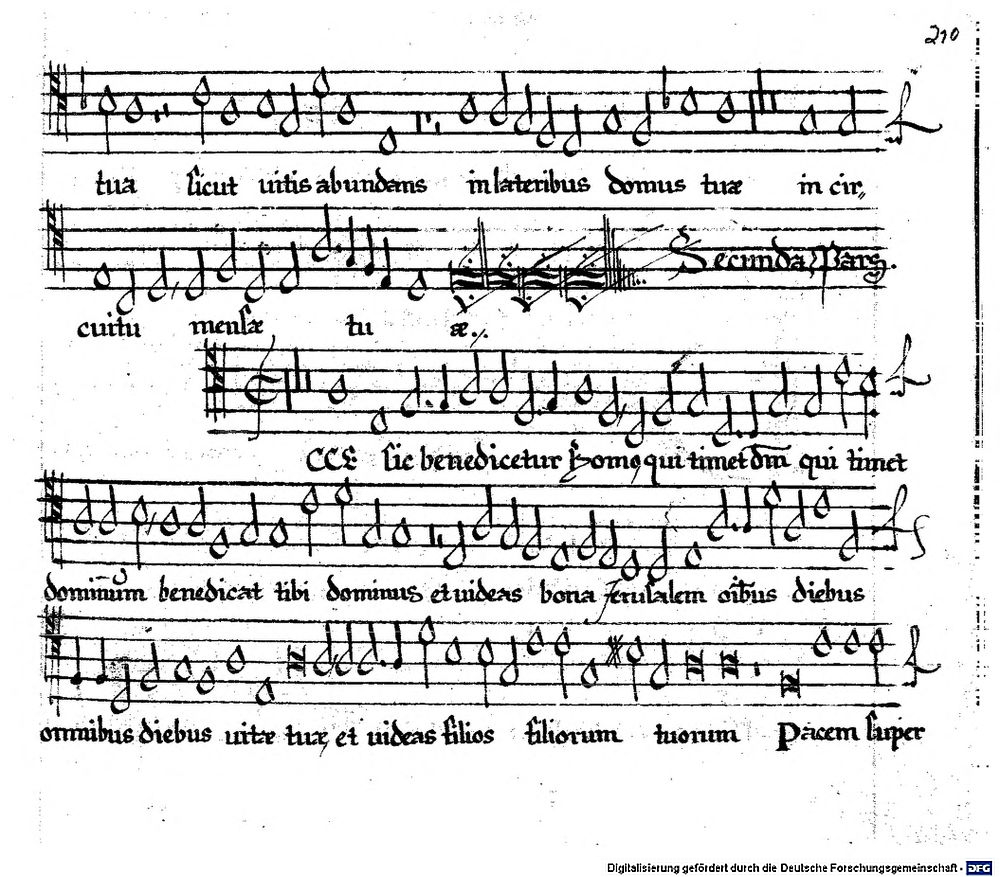 210
tua sicut uitis abundans in lateribus domus tuæ in cir,,
cuitu mensæ tu æ.
Secunda Pars.
CCE sic benedicetur homo qui timet dm̄ qui timet
dominum benedicat tibi dominus et uideas bona Jerusalem oib̄us diebus
omnibus diebus uitæ tuæ et uideas filios filiorum tuorum Pacem super
Digitalisierung gefördert durch die Deutsche Forschungsgemeinschaft - DFG